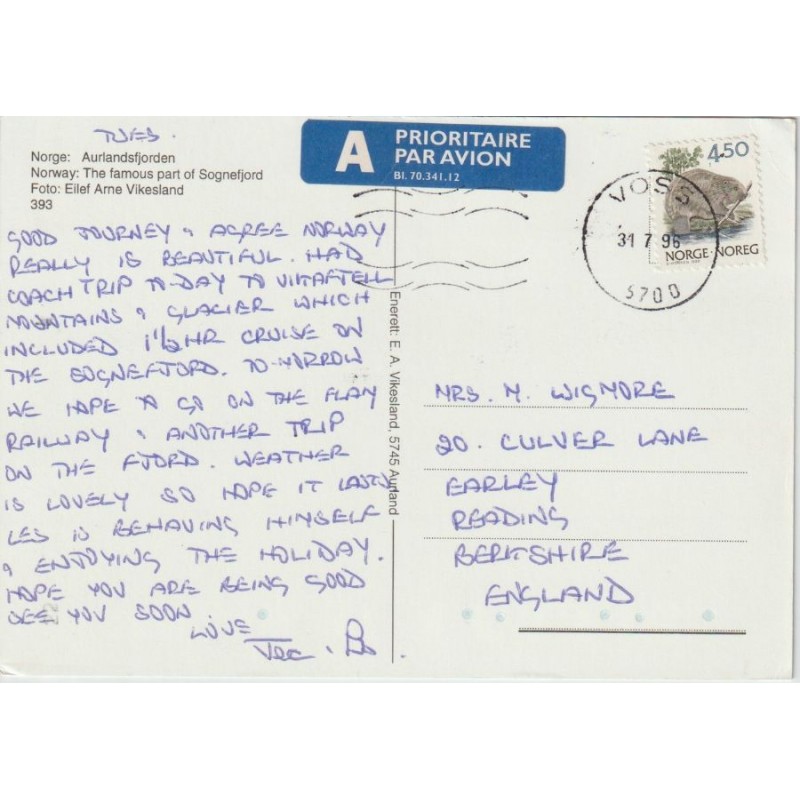 TUES.
Norge: Aurlandsfjorden
Norway: The famous part of Sognefjord
Foto: Eilef Arne Vikesland
393
GOOD JOURNEY & AGREE NORWAY
REALLY IS BEAUTIFUL. HAD
COACH TRIP TO-DAY TO
MOUNTAINS & GLACIER WHICH
INCLUDED 1½HR CRUISE ON
THE SOGNEFJORD. TO-MORROW
WE HOPE TO GO ON THE FLAM
RAILWAY & ANOTHER TRIP
ON THE FJORD. WEATHER
IS LOVELY SO HOPE IT LASTS
LES IS BEHAVING HIMSELF
& ENJOYING THE HOLIDAY.
HOPE YOU ARE BEING GOOD
SEE YOU SOON.
LOVE
Enerett: E. A. Vikesland, 5745 Aurland
A PRIORITAIRE
PAR AVION
Bl. 70.341.12
VOSS
31 7 96
5700
4.50
NORGE·NOREG
MRS. M. WIGMORE
20. CULVER LANE
EARLEY
READING
BERKSHIRE
ENGLAND